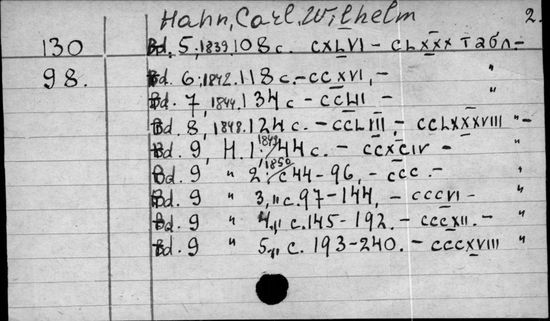 Hahn, Carl, Wilhelm 2.
130 Bd. 5, 1839, 108 с. CXLVI - CLXXX табл -
98. Bd. 6, 1842. 118 с. - CCXVI, - "
Bd. 7, 1844, 134 с - CCLII - "
Bd. 8, 1848. 124 с. - CCLIII, - CCLXXXVIII " -
Bd. 9, H. 1. 1849 44 с. - CCXCIV - "
Bd. 9 " 2. 1850 с 44-96, - CCC. - "
Bd. 9 " 3, " с. 97-144, - CCCVI - "
Bd. 9 " 4, " с. 145-192. - CCCXII. - "
Bd. 9 " 5, " с. 193-240. - CCCXVIII "